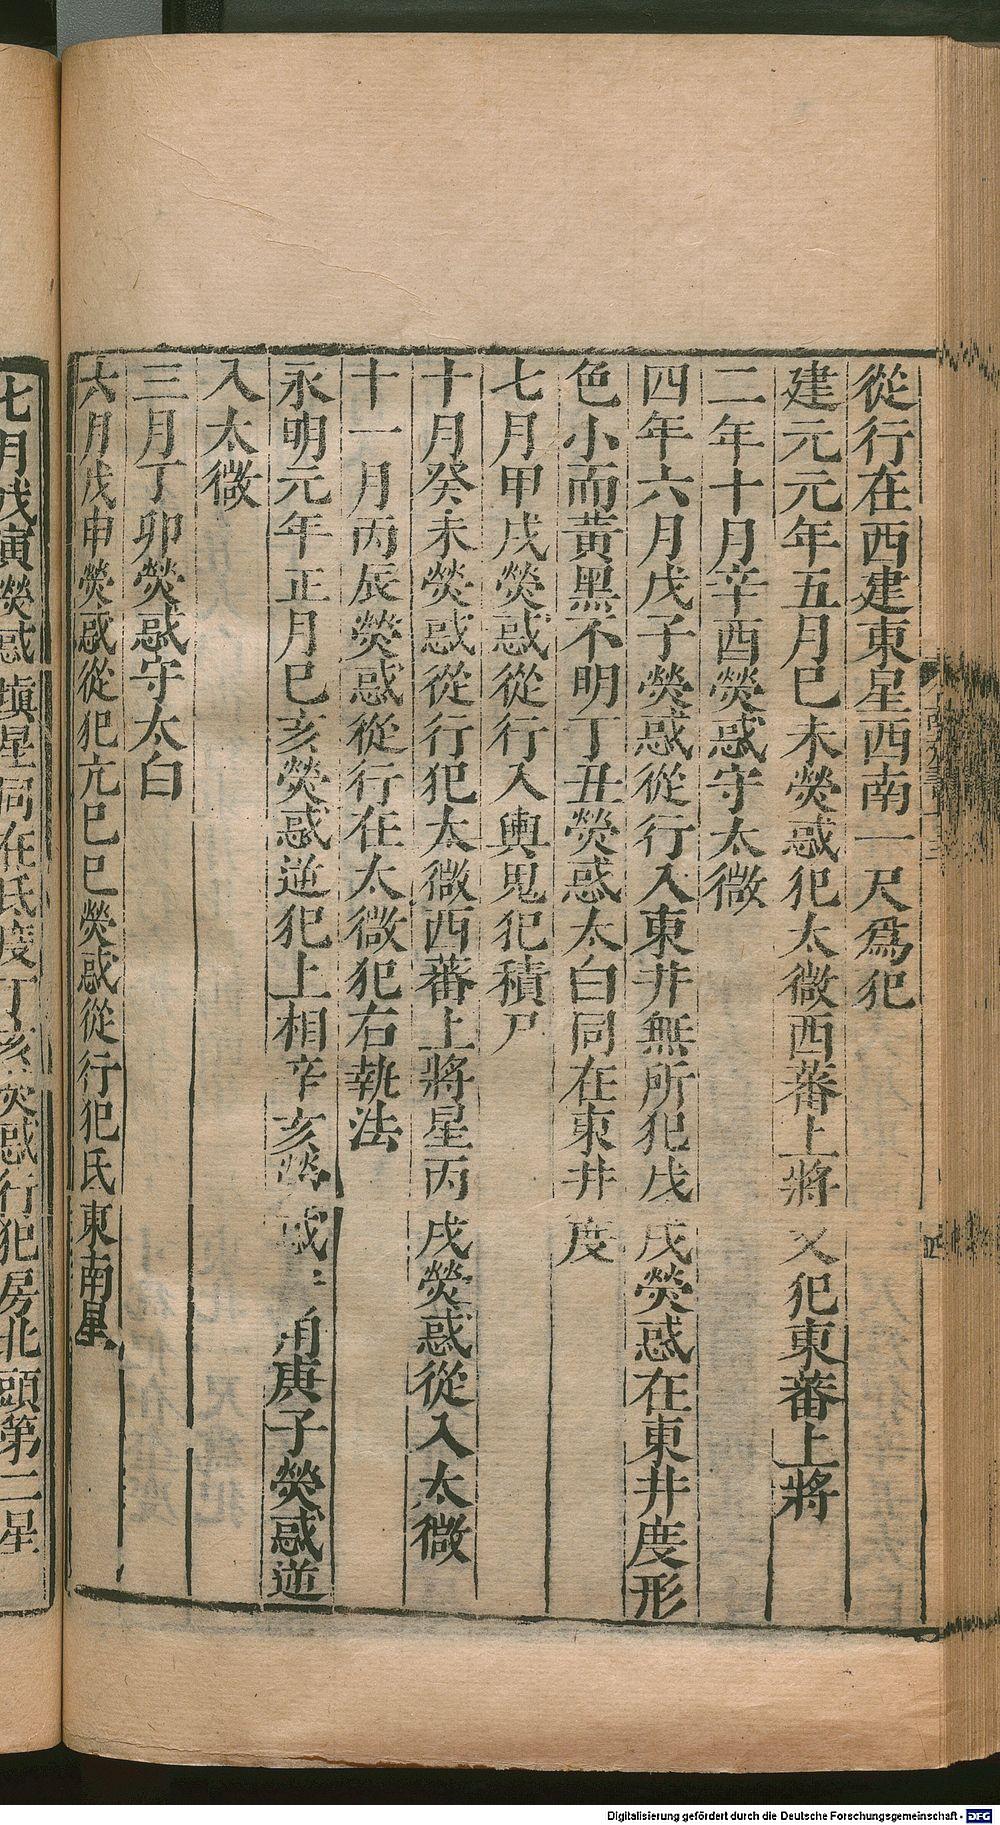 從行在西建東星西南一尺爲犯
建元元年五月己未熒惑犯太微西蕃上將又犯東蕃上將
二年十月辛酉熒惑守太微
四年六月戊子熒惑從行入東井無所犯戊戌熒惑在東井度形
色小而黃黑不明丁丑熒惑太白同在東井度
七月甲戌熒惑從行入輿鬼犯積尸
十月癸未熒惑從行犯太微西蕃上將星丙戌熒惑從入太微
十一月丙辰熒惑從行在太微犯右執法
永明元年正月己亥熒惑逆犯上相辛亥熒惑角庚子熒惑逆
入太微
三月丁卯熒惑守太白
六月戊申熒惑從犯亢己巳熒惑從行犯氐東南星
七月戊寅熒惑塡星同在氐度丁亥熒惑行犯房北頭第二星
Digitalisierung gefördert durch die Deutsche Forschungsgemeinschaft - DFG